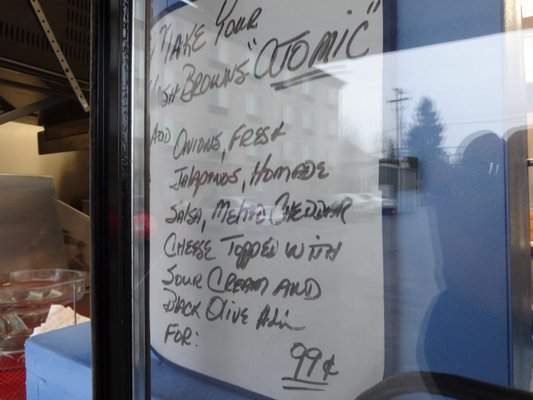 MAKE YOUR
HASH BROWNS "ATOMIC"
ADD ONIONS, FRESH
JALAPINOS, HOMADE
SALSA, MELTED CHEDDAR
CHEESE TOPPED WITH
SOUR CREAM AND
BLACK OLIVE
FOR:
99¢